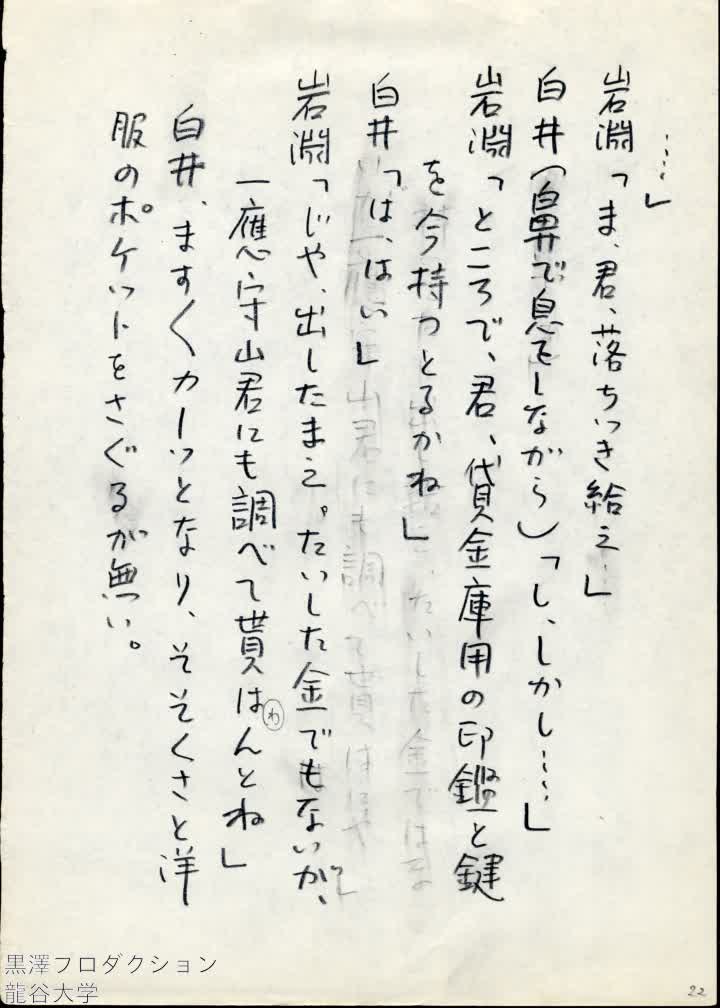 ……」
岩淵「ま、君、落ちつき給え」
白井（鼻で息をしながら）「し、しかし……」
岩淵「ところで、君、貸金庫用の印鑑と鍵
を今持つとるかね」
白井「は、はい」
岩淵「じや、出したまえ。たいした金でもないが、
一應守山君にも調べて貰はんとね」
わ
白井、ます〱カーッとなり、そそくさと洋
服のポケットをさぐるが無い。
黒澤プロダクション
龍谷大学
22